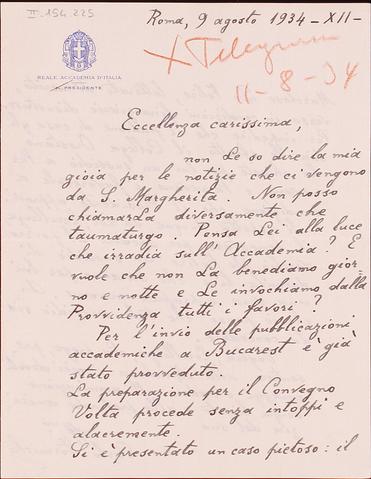 II.154.225
Roma, 9 agosto 1934-XII-
X Telegramma
11-8-34
REALE ACCADEMIA D'ITALIA
IL PRESIDENTE
Eccellenza carissima,
non Le so dire la mia
gioia per le notizie che ci vengono
da S. Margherita. Non posso
chiamarLa diversamente che
taumaturgo. Pensa Lei alla luce
che irradia sull'Accademia? E
vuole che non La benediamo gior-
no e notte e Le invochiamo dalla
Provvidenza tutti i favori?
Per l'invio delle pubblicazioni
accademiche a Bucarest è già
stato provveduto.
La preparazione per il Convegno
Volta procede senza intoppi e
alacremente.
Si è presentato un caso pietoso: il